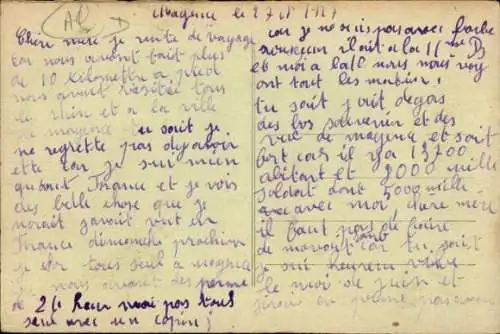 Al D
Mayence le 27
Chère mère je rentre de voyage
car nous avont fait plus
de 10 kilomettre a pied
nous avont visitée tous
le rhin et a la ville
de mayence tu sait je
ne regrette pas dy avoir
ette car je sui mieu
quen France et je vois
des belle chose que je
norait jamait vut en
France dimanche prochin
je tous seul a mayence
nous avont des perme
de 24 heur moi pas tous
seul avec un copin;
car je ne sui pas avec
il ait a la 11 me B
et moi a la 10 nous nous voy
ont tout les matin;
tu sait jait degas
des bos souvenir et des
vue de mayence et sait
fort car il y a 13700
abitant et 9000 mille
soldat dont 5000 mille
avec moi chere mere
il faut pas te faire
de mauvait sang car tu sait
je sui heureux
le moi de juin et